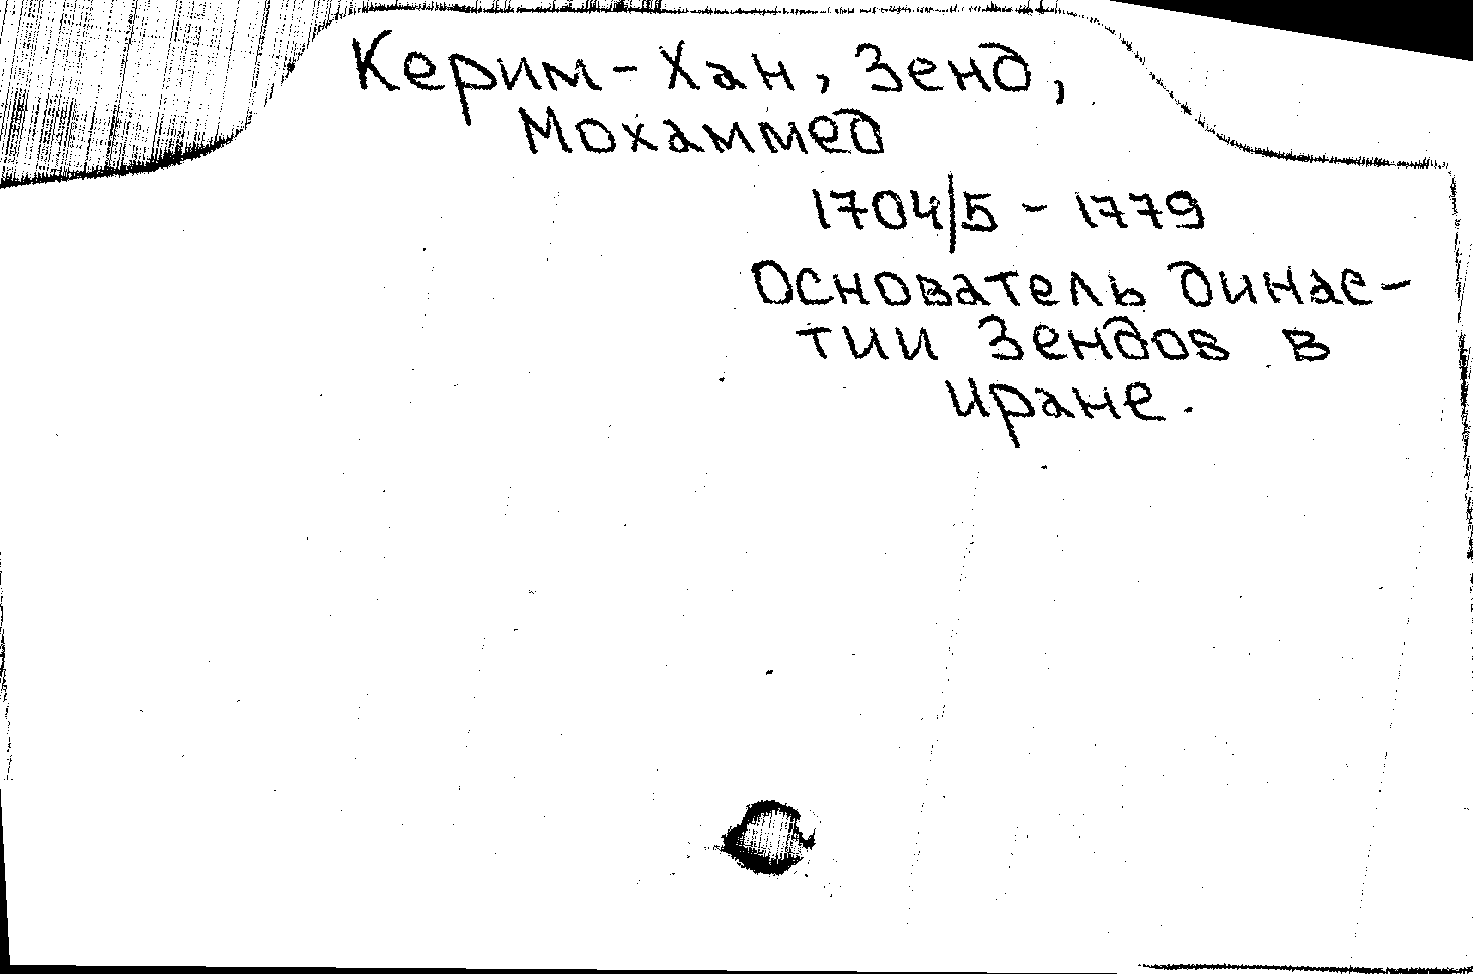 Керим-Хан, Зенд,
Мохаммед
1704/5 - 1779
Основатель динас-
тии Зендов в
Иране.